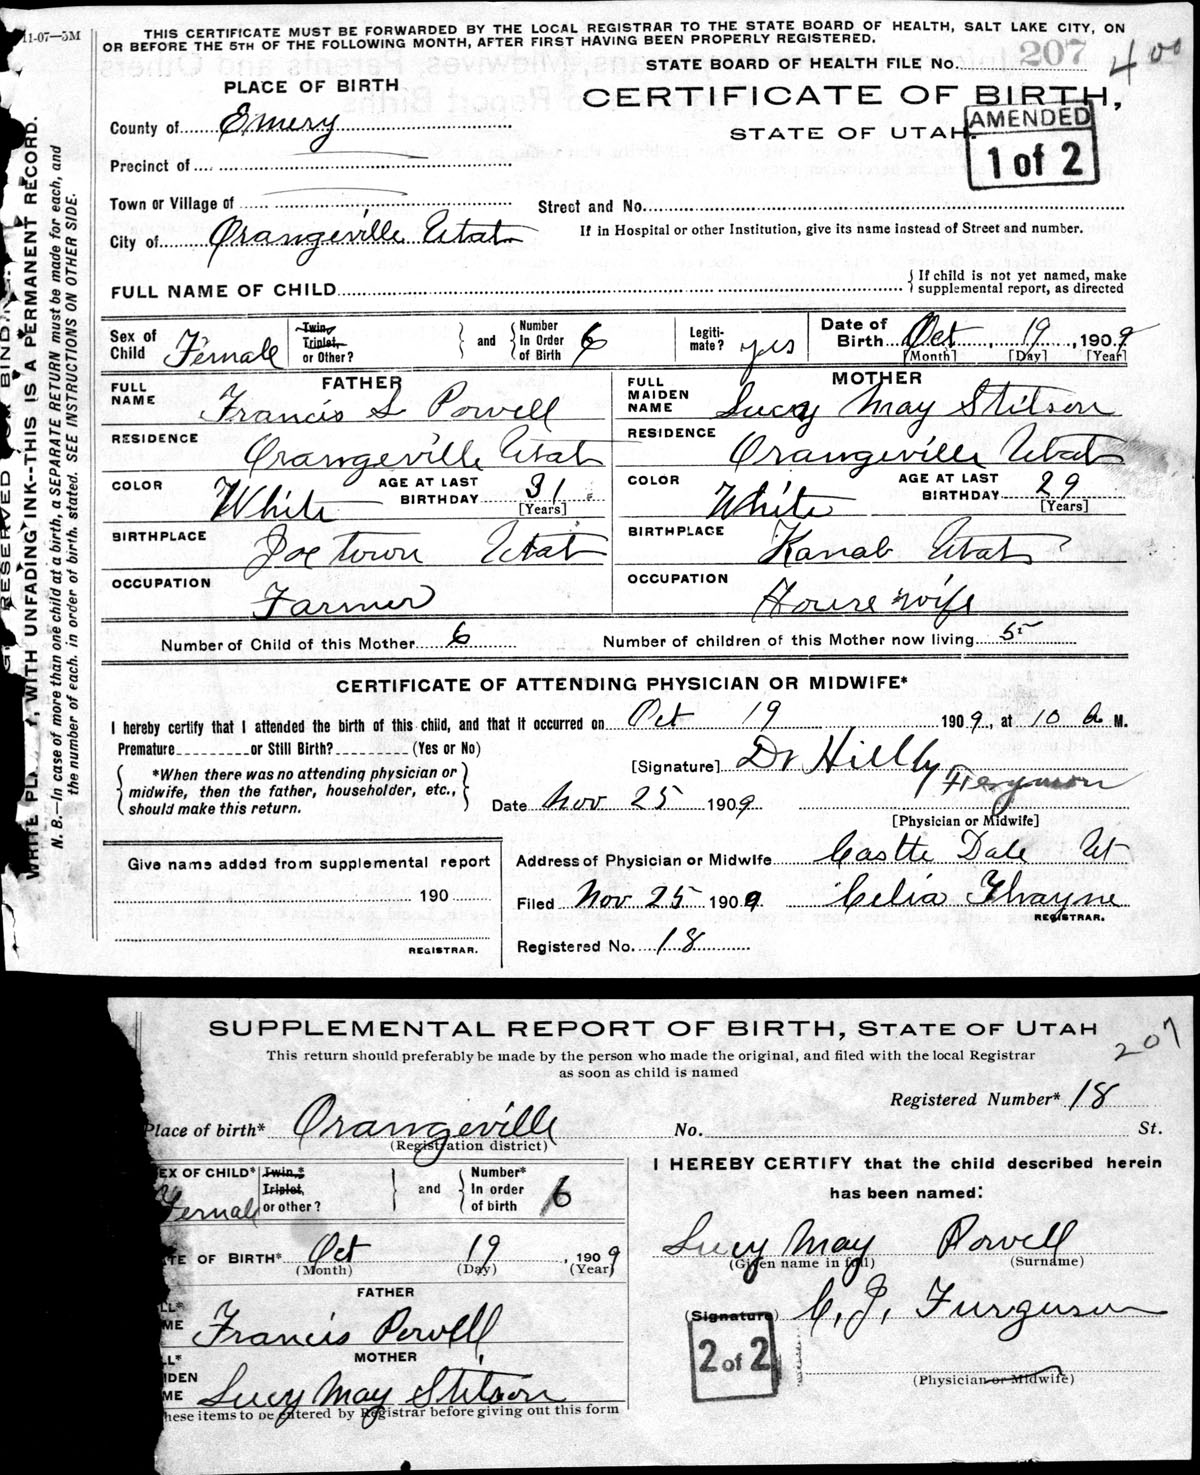 11-07—5M
THIS CERTIFICATE MUST BE FORWARDED BY THE LOCAL REGISTRAR TO THE STATE BOARD OF HEALTH, SALT LAKE CITY, ON
OR BEFORE THE 5TH OF THE FOLLOWING MONTH, AFTER FIRST HAVING BEEN PROPERLY REGISTERED.
STATE BOARD OF HEALTH FILE No. 207 400
PLACE OF BIRTH
CERTIFICATE OF BIRTH,
STATE OF UTAH.
AMENDED
1 of 2
County of Emery
Precinct of
Town or Village of
Street and No.
City of Orangeville Utah
If in Hospital or other Institution, give its name instead of Street and number.
FULL NAME OF CHILD
If child is not yet named, make
supplemental report, as directed
Sex of Child Female
Twin, Triplet, or Other? and Number In Order of Birth 6
Legiti-mate? yes
Date of Birth Oct 19, 1909
[Month] [Day] [Year]
FATHER
FULL NAME Francis S Powell
RESIDENCE Orangeville Utah
COLOR White AGE AT LAST BIRTHDAY 31 [Years]
BIRTHPLACE Joe town Utah
OCCUPATION Farmer
MOTHER
FULL MAIDEN NAME Lucy May Stilson
RESIDENCE Orangeville Utah
COLOR White AGE AT LAST BIRTHDAY 29 [Years]
BIRTHPLACE Kanab Utah
OCCUPATION House wife
Number of Child of this Mother 6 Number of children of this Mother now living 5
CERTIFICATE OF ATTENDING PHYSICIAN OR MIDWIFE*
I hereby certify that I attended the birth of this child, and that it occurred on Oct 19 1909, at 10 a M.
Premature or Still Birth? (Yes or No)
*When there was no attending physician or
midwife, then the father, householder, etc.,
should make this return.
[Signature] Dr Hilly
Date Nov 25 1909
[Physician or Midwife]
Give name added from supplemental report
190
REGISTRAR.
Address of Physician or Midwife Castle Dale Ut
Filed Nov 25 1909 Celia
REGISTRAR.
Registered No. 18
RESERVED FOR BINDING
WRITE PLAINLY, WITH UNFADING INK--THIS IS A PERMANENT RECORD.
N. B.—In case of more than one child at a birth, a SEPARATE RETURN must be made for each, and
the number of each, in order of birth, stated. SEE INSTRUCTIONS ON OTHER SIDE.
SUPPLEMENTAL REPORT OF BIRTH, STATE OF UTAH
207
This return should preferably be made by the person who made the original, and filed with the local Registrar
as soon as child is named
Registered Number* 18
Place of birth* Orangeville
(Registration district)
No. St.
SEX OF CHILD* Female
Twin,* Triplet, or other? and Number* In order of birth 6
DATE OF BIRTH* Oct 19, 1909
(Month) (Day) (Year)
FATHER
Francis Powell
MOTHER
Lucy May Stilson
these items to be entered by Registrar before giving out this form
I HEREBY CERTIFY that the child described herein
has been named:
Lucy May Powell
(Given name in full) (Surname)
(Signature) C. J. Furguson
2 of 2
(Physician or Midwife)